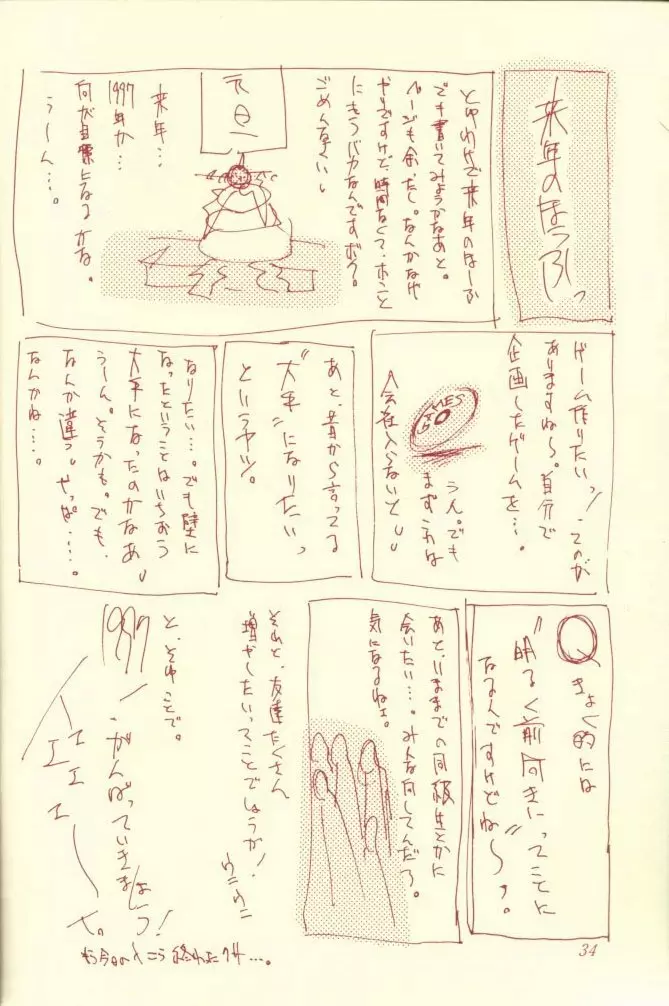 来年のほうふっ
とゆわけで来年のほーふ
でも書いてみようかなあと。
ページも余ったし。なんかなげ
やりですけど、時間なくて、ホント
にもうバカなんですボク。
ごめんなさいし
元旦
来年…
1997年か…
何が目標になるかな。
うーん…。
ゲーム作りたいっ！てのが
ありますね〜。自分で
企画したゲームを…。
GAMES
うん。でも
まずこれは
会社入らないとしし
あと、昔から言ってる
"大手"になりたいっ
というヤツ。
なりたい…。でも壁に
なったということはいちおう
大手になったのかなあし
うーん。そうかも。でも、
なんか違うし やっぱ……。
なんかね……。
Qきょく的には
"明るく前向きに"ってことに
なるんですけどね〜っ。
あと、いままでの同級生とかに
会いたい…。みんな何してんだろ。
気になるねェ。
それと、友達たくさん
増やしたいってことでしょうか！
ウニウニ
と、そゆことで。
1997
がんばっていきましょう！
エエエ
34